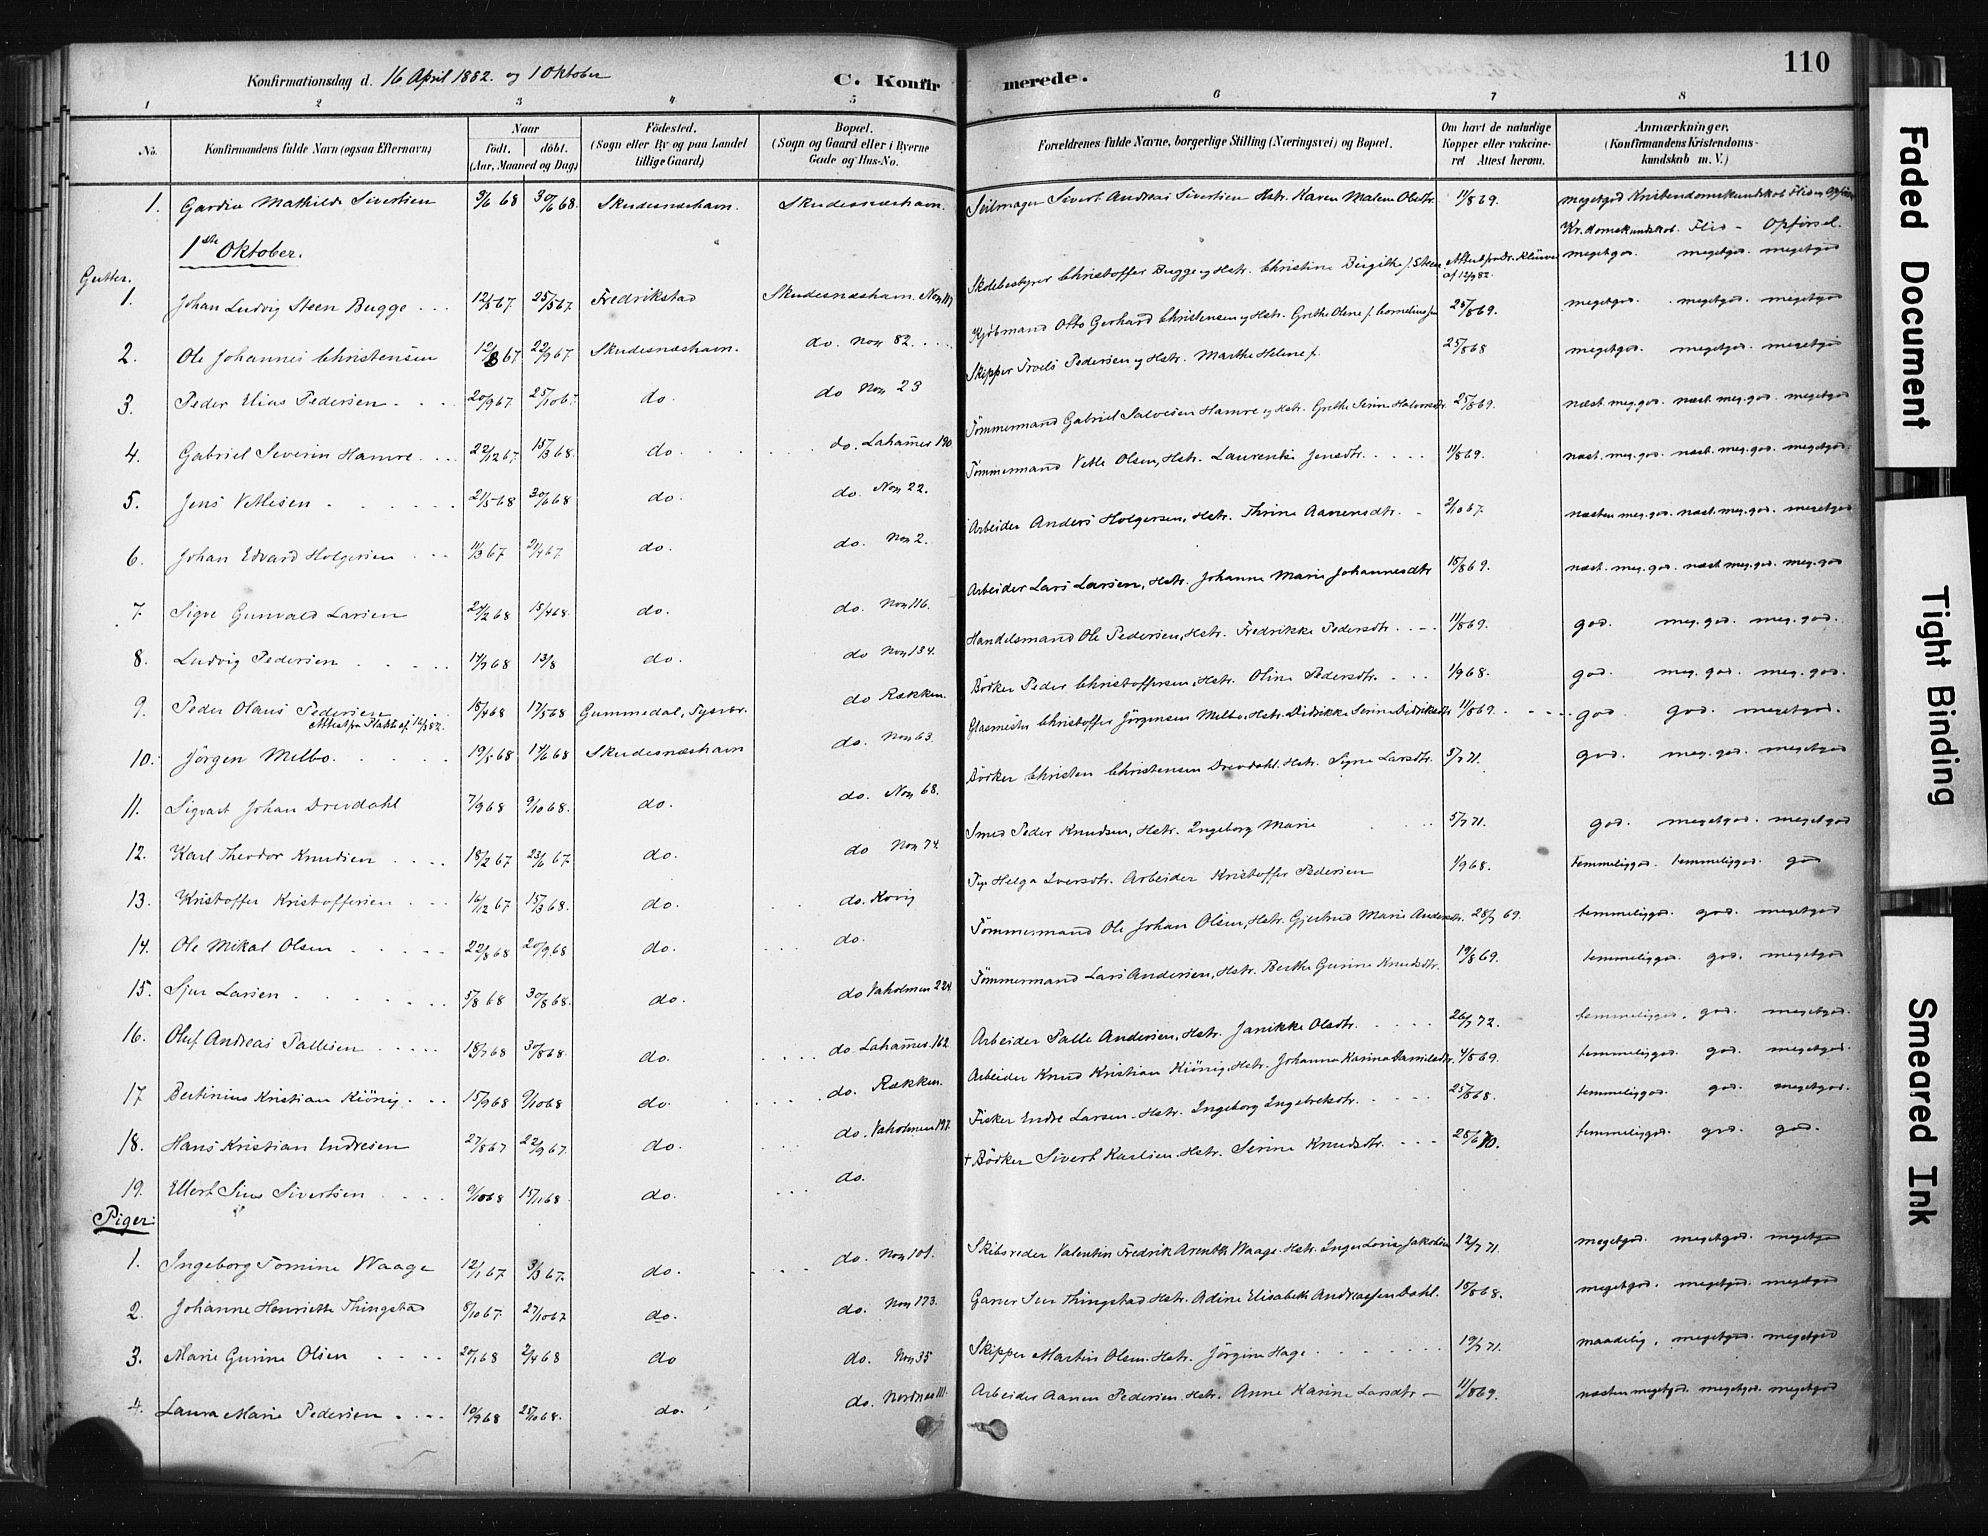 110
Konfirmationsdag d. 16 April 1882. og 1 Oktober C. Konfirmerede.
1 2 3 4 5 6 7 8
No. Konfirmandens fulde Navn (ogsaa Efternavn) Naar født. døbt. (Aar, Maaned og Dag) Födested. (Sogn eller By og paa Landet tillige Gaard) Bopæl. (Sogn og Gaard eller i Byerne Gade og Hus-No. Forældrenes fulde Navne, borgerlige Stilling (Næringsvei) og Bopæl. Om havt de naturlige Kopper eller vakcineret Attest herom. Anmærkninger. (Konfirmandens Kristendomskundskab m. V.)
1. Mathilde Sivertsen 3/6 68 30/6 68. Skudesnæshavn. Skudesnæshavn. Seilmager Sivert Andreas Sivertsen Hstr. Karen Malene Olsdtr. 11/8 69. megetgod Kristendomskundskab Flid og Opførsel
1ste Oktober. Kr.domskundskab. Flid - Opførsel.
Gutter.
1. Johan Ludvig Steen Bugge 12/3 67 25/5 67. Fredrikstad Skudesnæshavn. Skolebestyrer Christoffer Bugge og Hstr. Christine Birgithe f. Steen Attest fra Dr. Klüwer af 12/9 82. megetgod. megetgod. megetgod
2. Ole Johannes Christensen 12/8 67 22/9 67 Skudesnæshavn. do. Non 82. Kjøbmand Otto Gerhard Christensen og Hstr. Grethe Olene f. 25/8 69. megetgod. megetgod. megetgod
3. Peder Elias Pedersen 20/9 67 25/10 67. do. do Non 23 Skipper Troels Pedersen og Hstr. Marthe Helene f. 25/8 68 megetgod. megetgod. megetgod
4. Gabriel Severin Hamre 22/12 67. 15/3 68. do. do. Lahamer 190 Tømmermand Gabriel Salvesen Hamre og Hstr. Grethe Serine Halvorsdtr. 25/8 69. næst. meg.god. næst. meg.god. megetgod
5. Jens Vetlesen 21/5 68 30/6 68 do. do. Non 22. Tømmermand Vetle Olsen, Hstr. Laurentse Jensdtr. 11/8 69. næst. meg.god. næst. meg.god. megetgod.
6. Johan Edvard Holgersen 11/3 67 21/4 67. do. do. Non 2. Arbeider Anders Holgersen, Hstr. Thrine Aanensdtr. 2/10 67. næsten meg.god. næst. meg.god. megetgod
7 Sigve Gunvald Larsen 24/2 68 15/4 68. do. do. Non 116. Arbeider Lars Larsen, Hstr. Johanne Marie Johannesdtr 15/8 69. næst. meg.god. næst meg.god. meg.god
8. Ludvig Pedersen 14/7 68 13/8 do. do Non 134. Handelsmand Ole Pedersen, Hstr. Fredrikke Pedersdtr. 11/8 69. god. meg.god. meg.god.
9. Peder Olaus Pedersen 18/4 68 17/5 68 Gummedal, Tysvær. do Rækken. Bødker Peder Christoffersen, Hstr. Oline Pedersdtr. 1/9 68. god. meg.god. meg.god.
10. Jörgen Melbo. 19/5 68 14/6 68 Skudesnæshavn do. Non 63. Glasmester Christoffer Jørgensen Melbo, Hstr. Didrikke Serine Didriksdtr 11/8 69. god. god. megetgod.
11. Sigvart Johan Drevdahl 7/9 68 9/10 68. do. do. Non 68. Bødker Christen Christensen Drevdahl. Hstr. Syne Larsdtr. 5/7 71. god. meg.god. megetgod
12. Karl Theodor Knudsen 18/2 67 23/6 67. do. do Non 74. Smed Peder Knudsen, Hstr. Ingeborg Marie 5/7 71. god. megetgod. megetgod
13. Kristoffer Kristoffersen 16/12 67 15/3 68. do. do. Kovig Pige Helga Iversdtr. Arbeider Kristoffer Pedersen 1/9 68. temmeliggod. temmeliggod. god
14. Ole Mikal Olsen 22/8 68 20/9 68 do. do. Tømmermand Ole Johan Olsen, Hstr. Gjertrud Marie Andersdtr. 28/7 69. temmeliggod. god. megetgod
15. Sjur Larsen 5/8 68 30/8 68. do. do Vaholmen 224. Tømmermand Lars Andersen, Hstr. Berthe Gurine Knudsdtr. 19/8 69. temmeliggod. god. megetgod
16. Oluf Andreas Pallesen 18/7 68 30/8 68. do. do. Lahamer. 162. Arbeider Palle Andersen, Hstr. Janikke Olsdtr. 26/7 72. temmeliggod. god. megetgod.
17 Bertinius Kristian Kiönig. 15/9 68 9/10 68 do. do. Rækken. Arbeider Knud Kristian Kiönig, Hstr. Johanna Karina 4/8 69. temmeliggod. god. megetgod.
18. Hans Kristian Endresen 27/8 67 22/9 67. do. do. Vaholmen 197. Fisker Endre Larsen. Hstr. Ingeborg Ingebretsdtr. 25/8 68. temmeliggod. god. megetgod.
19. Ellert Sivertsen 9/10 68 15/11 68. do. do. † Bødker Sivert Karlsen. Hstr. Serine Knudsdtr. 28/6 70. temmeliggod. god. god.
Piger:
1. Ingeborg Tomine Waage 12/1 67 3/3 67. do. do. Non 101. Skibsreder Valentin Fredrik Arentz Waage. Hstr. Inger Lovise Jakobsen 12/7 71. megetgod. megetgod. megetgod
2. Johanne Henriette Thingstad 8/10 67. 27/10 67 do. do. Non 173. Garver Iver Thingstad Hstr. Adine Elisabeth Andreassen Dahl. 15/8 68. megetgod. megetgod. megetgod
3. Marie Gurine Olsen 20/1 68 2/4 68 do do. Non 35 Skipper Martin Olsen. Hstr. Jørgine Hage 19/7 71. maadelig, megetgod. megetgod
4. Laura Marie Pedersen 10/9 68 25/10 68. do. do. Nordnes 111. Arbeider Aanen Pedersen Hstr. Anne Karine Larsdtr 11/8 69. næsten megetgod. megetgod. megetgod
Faded Document
Tight Binding
Smeared Ink